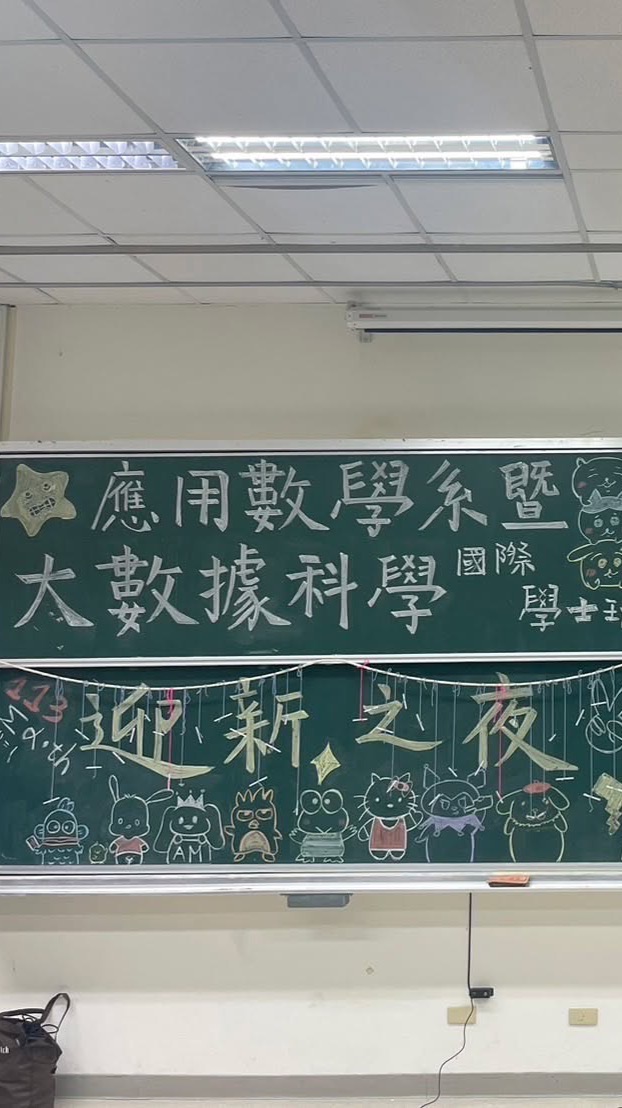 應用數學系暨
大數據科學
國際
學士班
113
迎新之夜
AMI